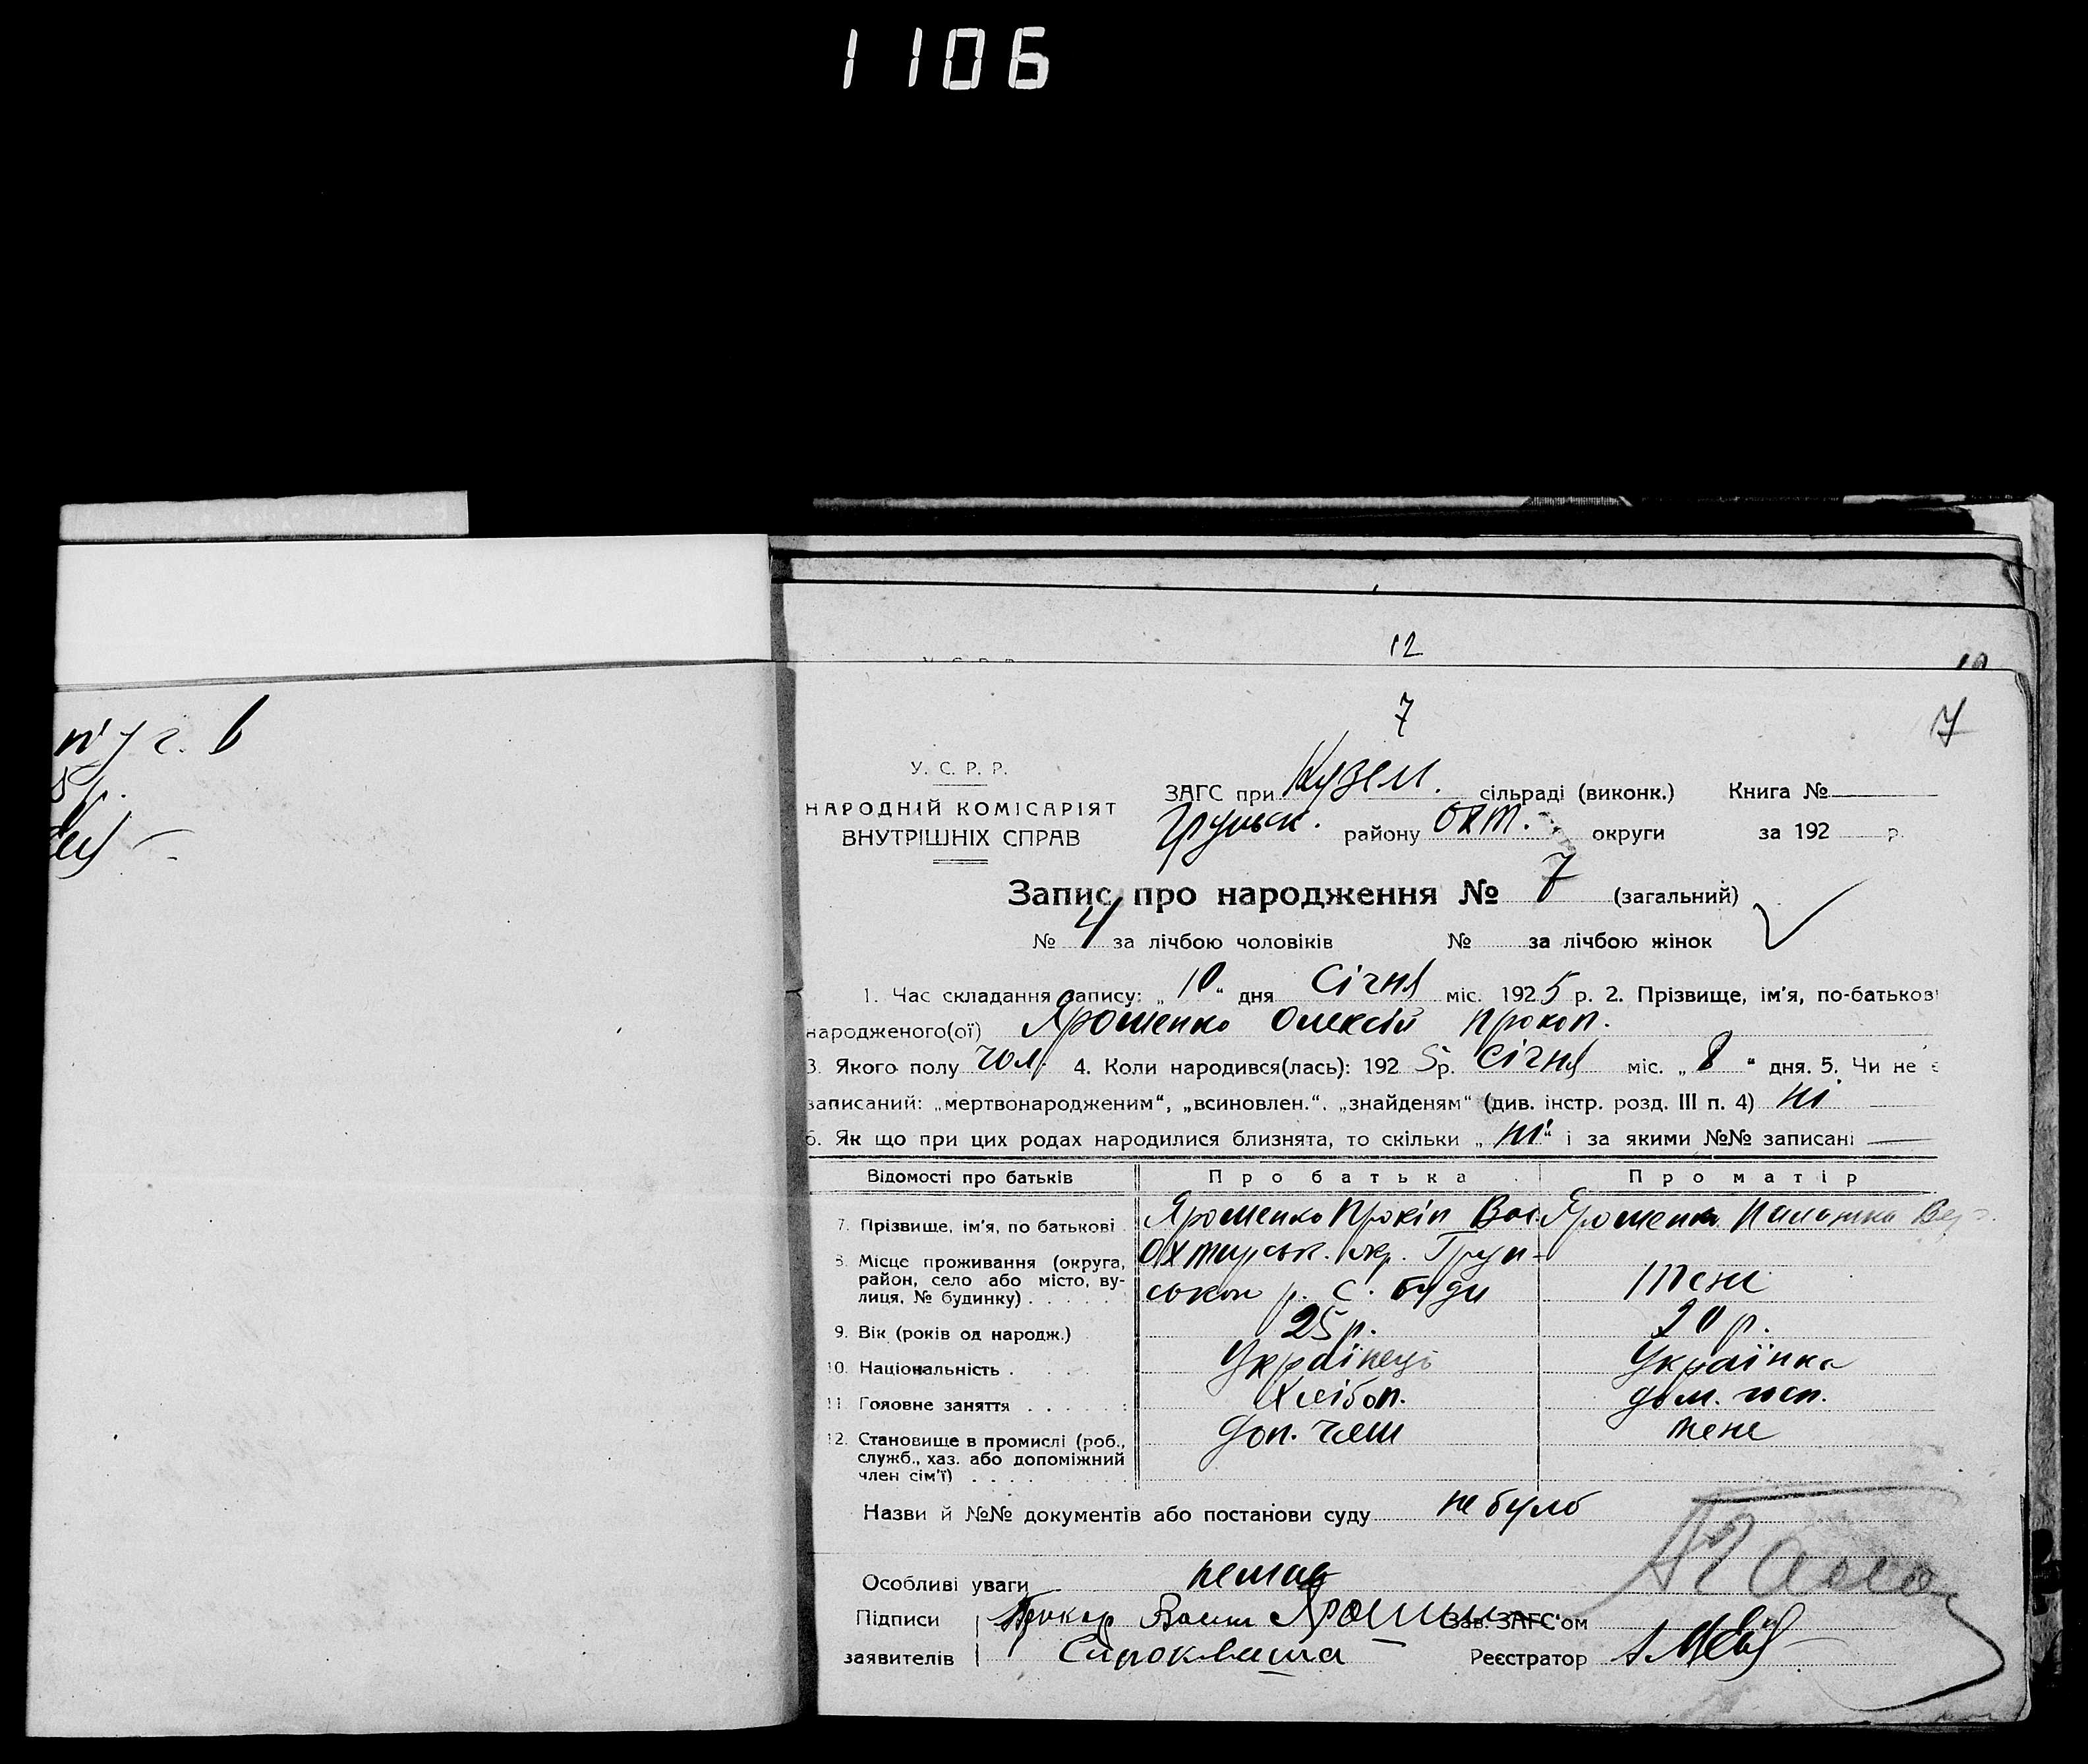 1106
12
10
7
7
У. С. Р. Р.
НАРОДНІЙ КОМІСАРІЯТ
ВНУТРІШНІХ СПРАВ
ЗАГС при Кузем. сільраді (виконк.) Книга №
Грунськ. району Охт. округи за 192 р.
Запис про народження № 7 (загальний)
№ 4 за лічбою чоловіків № за лічбою жінок
1. Час складання запису: „10“ дня Січня міс. 1925 р. 2. Прізвище, ім'я, по-батькові
народженого(ої) Ярошенко Олексій Прокоп.
3. Якого полу чол. 4. Коли народився(лась): 1925 р. Січня міс. „8“ дня. 5. Чи не є
записаний: „мертвонародженим“, „всиновлен.“. „знайденям“ (див. інстр. розд. III п. 4) ні
6. Як що при цих родах народилися близнята, то скільки „ні“ і за якими №№ записані
Відомості про батьків Про батька Про матір
7. Прізвище, ім'я, по батькові Ярошенко Прокіп Вас. Ярошенко
8. Місце проживання (округа, район, село або місто, вулиця, № будинку) Охтирськ. окр. Грунської р. с. Буди теж
9. Вік (років од народж.) 25 р. 20 р.
10. Національність Українець Українка
11. Головне заняття Хлібоп. дом. госп.
12. Становище в промислі (роб., служб., хаз. або допоміжний член сім'ї) доп. член теж
Назви й №№ документів або постанови суду не було
Особливі уваги немає
Підписи Зав. ЗАГС'ом
заявителів Реєстратор